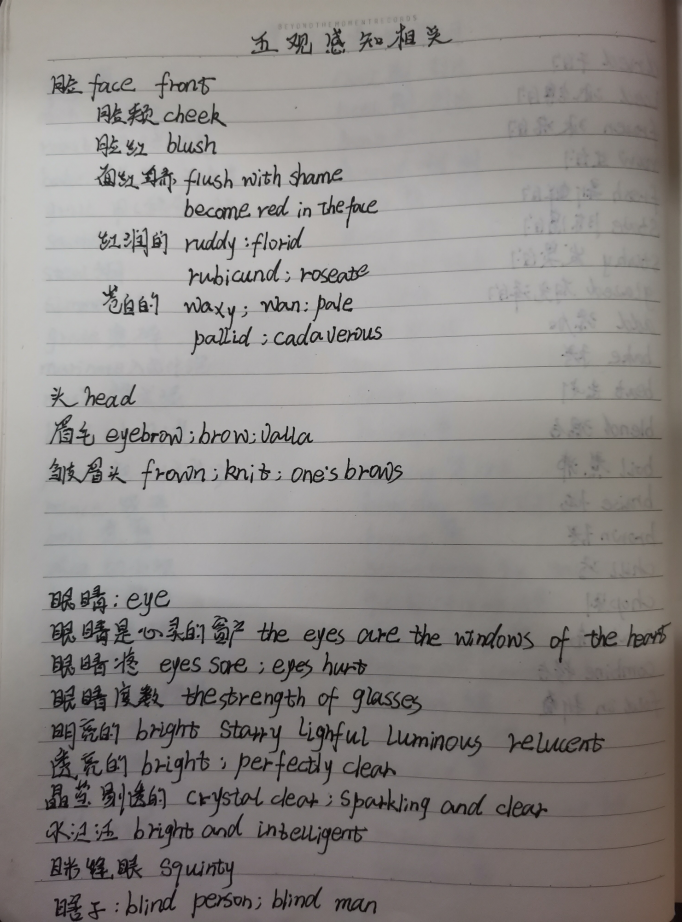 五观感知相关
脸 face front
脸颊 cheek
脸红 blush
面红耳赤 flush with shame
become red in the face
红润的 ruddy : florid
rubicund ; roseate
苍白的 waxy ; wan : pale
pallid ; cadaverous
头 head
眉毛 eyebrow ; brow ; valla
皱眉头 frown ; knit ; one's brows
眼睛 : eye
眼睛是心灵的窗户 the eyes are the windows of the heart
眼睛疼 eyes sore ; eyes hurt
眼睛度数 the strength of glasses
明亮的 bright starry lighful luminous relucent
透亮的 bright ; perfectly clear
晶莹剔透的 crystal clear ; sparkling and clear
水汪汪 bright and intelligent
眯缝眼 squinty
瞎子 : blind person ; blind man